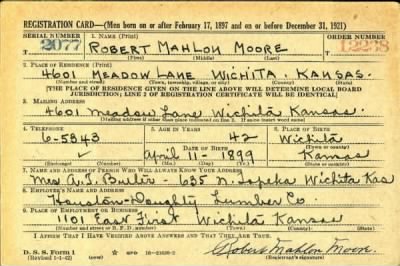 REGISTRATION CARD—(Men born on or after February 17, 1897 and on or before December 31, 1921)
SERIAL NUMBER 1. NAME (Print) ORDER NUMBER
2077 ROBERT MAHLON MOORE 12278
(First) (Middle) (Last)
2. PLACE OF RESIDENCE (Print)
4601 MEADOW LANE WICHITA. KANSAS.
(Number and street) (Town, township, village, or city) (County) (State)
[THE PLACE OF RESIDENCE GIVEN ON THE LINE ABOVE WILL DETERMINE LOCAL BOARD
JURISDICTION; LINE 2 OF REGISTRATION CERTIFICATE WILL BE IDENTICAL]
3. MAILING ADDRESS
4601 Meadow Lane, Wichita Kansas.
[Mailing address if other than place indicated on line 2. If same insert word same]
4. TELEPHONE 5. AGE IN YEARS 6. PLACE OF BIRTH
6-5343 42 Wichita
DATE OF BIRTH (Town or county)
April 11- 1899 Kansas
(Exchange) (Number) (Mo.) (Day) (Yr.) (State or country)
7. NAME AND ADDRESS OF PERSON WHO WILL ALWAYS KNOW YOUR ADDRESS
Mrs 635 N. Topeka Wichita Kas
8. EMPLOYER'S NAME AND ADDRESS
Houston-Doughty Lumber Co.
9. PLACE OF EMPLOYMENT OR BUSINESS
1101 East First Wichita Kansas
(Number and street or R. F. D. number) (Town) (County) (State)
I AFFIRM THAT I HAVE VERIFIED ABOVE ANSWERS AND THAT THEY ARE TRUE.
D. S. S. Form 1 GPO Robert Mahlon Moore
(Revised 1-1-42) (over) (Registrant's signature)